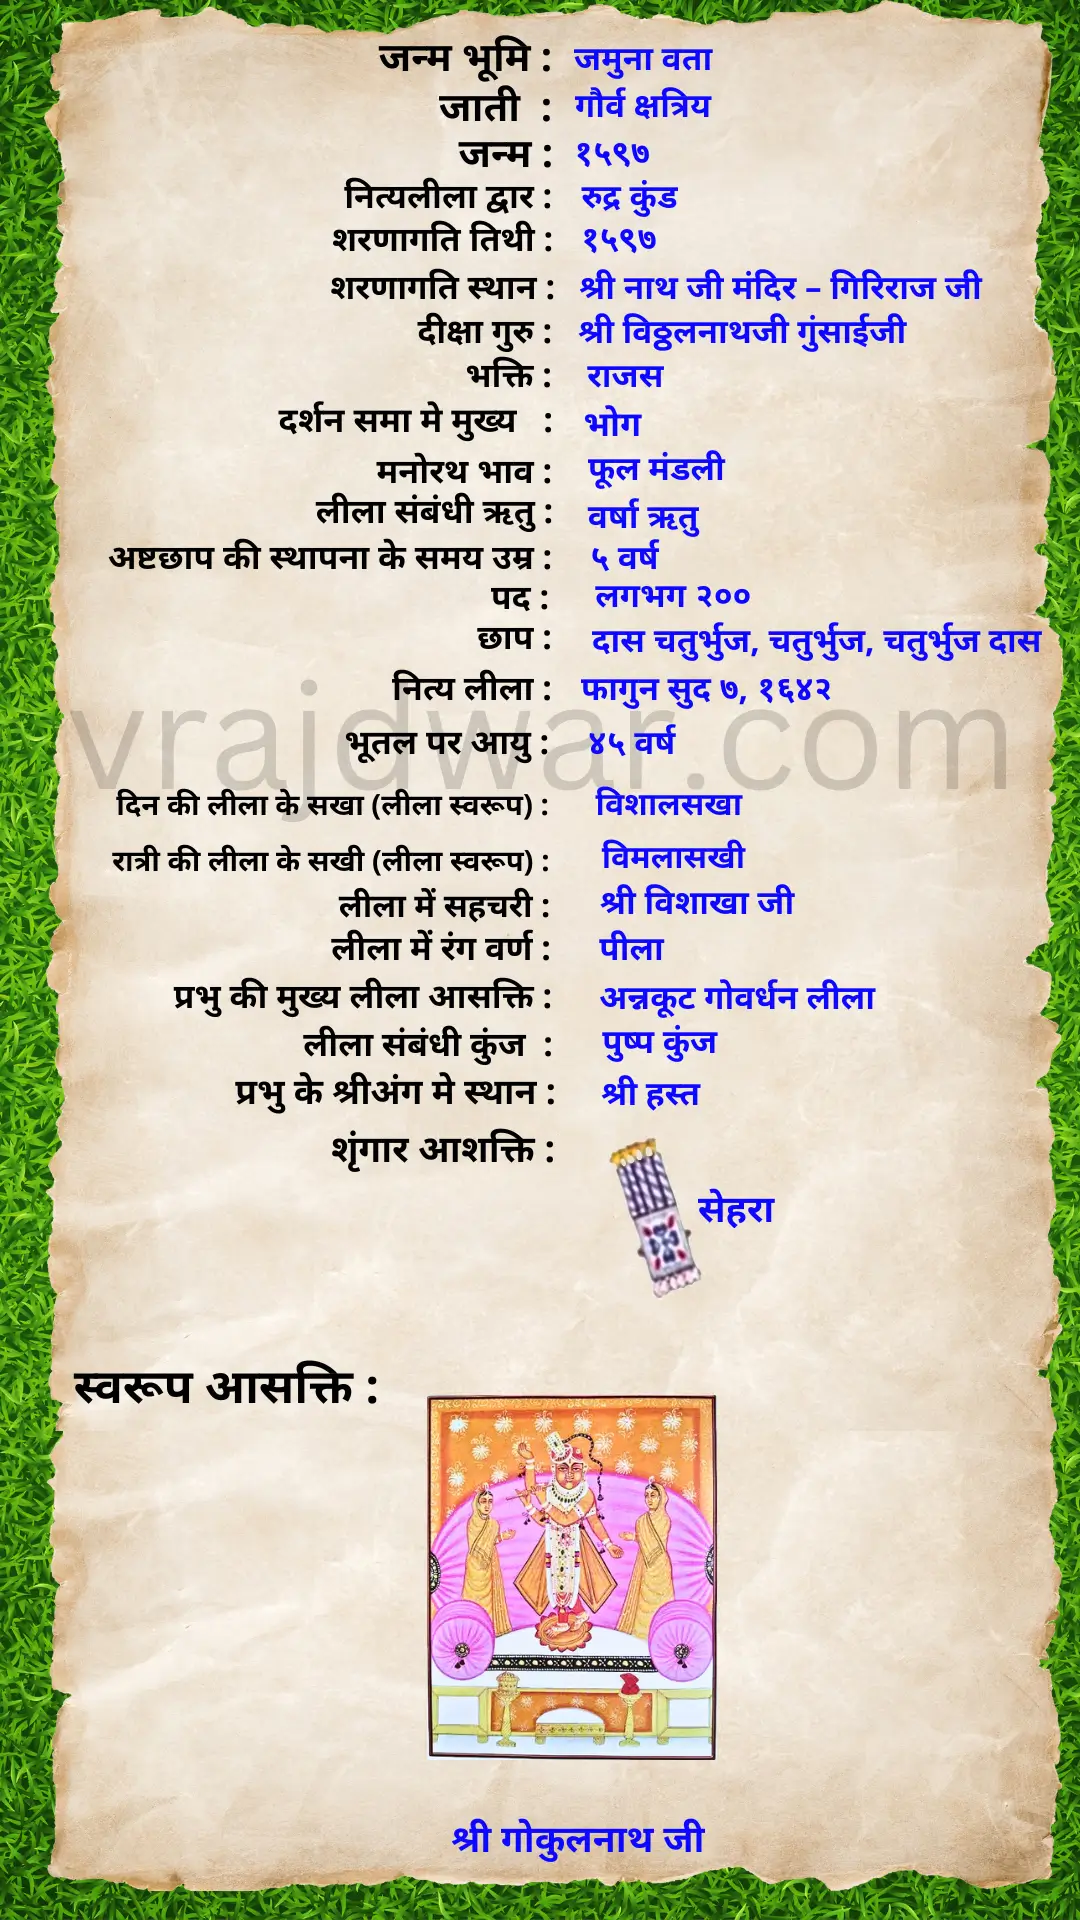 जन्म भूमि : जमुना वता
जाती : गौर्व क्षत्रिय
जन्म : १५९७
नित्यलीला द्वार : रुद्र कुंड
शरणागति तिथी : १५९७
शरणागति स्थान : श्री नाथ जी मंदिर – गिरिराज जी
दीक्षा गुरु : श्री विठ्ठलनाथजी गुंसाईजी
भक्ति : राजस
दर्शन समा मे मुख्य : भोग
मनोरथ भाव : फूल मंडली
लीला संबंधी ऋतु : वर्षा ऋतु
अष्टछाप की स्थापना के समय उम्र : ५ वर्ष
पद : लगभग २००
छाप : दास चतुर्भुज, चतुर्भुज, चतुर्भुज दास
नित्य लीला : फागुन सुद ७, १६४२
vrajdwar.com
भूतल पर आयु : ४५ वर्ष
दिन की लीला के सखा (लीला स्वरूप) : विशालसखा
रात्री की लीला के सखी (लीला स्वरूप) : विमलासखी
लीला में सहचरी : श्री विशाखा जी
लीला में रंग वर्ण : पीला
प्रभु की मुख्य लीला आसक्ति : अन्नकूट गोवर्धन लीला
लीला संबंधी कुंज : पुष्प कुंज
प्रभु के श्रीअंग मे स्थान : श्री हस्त
शृंगार आशक्ति :
सेहरा
स्वरूप आसक्ति :
श्री गोकुलनाथ जी